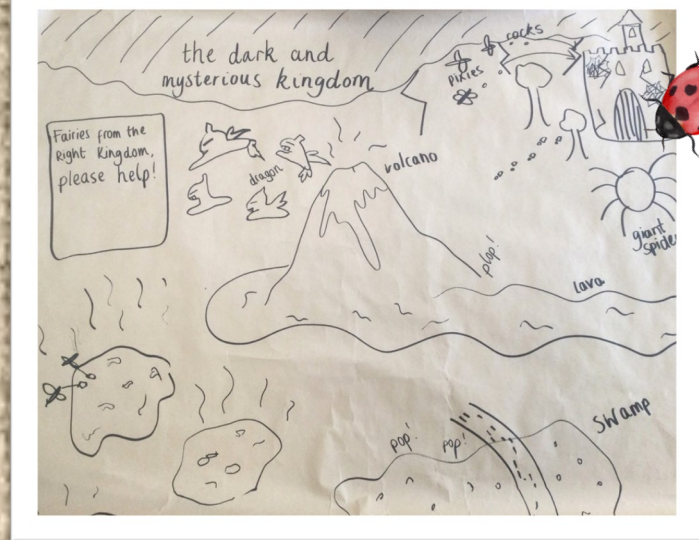 the dark and
mysterious kingdom
rocks
pixies
Fairies from the
Right Kingdom,
please help!
dragon
volcano
giant
spide
plop!
Lava
swamp
pop!
pop!